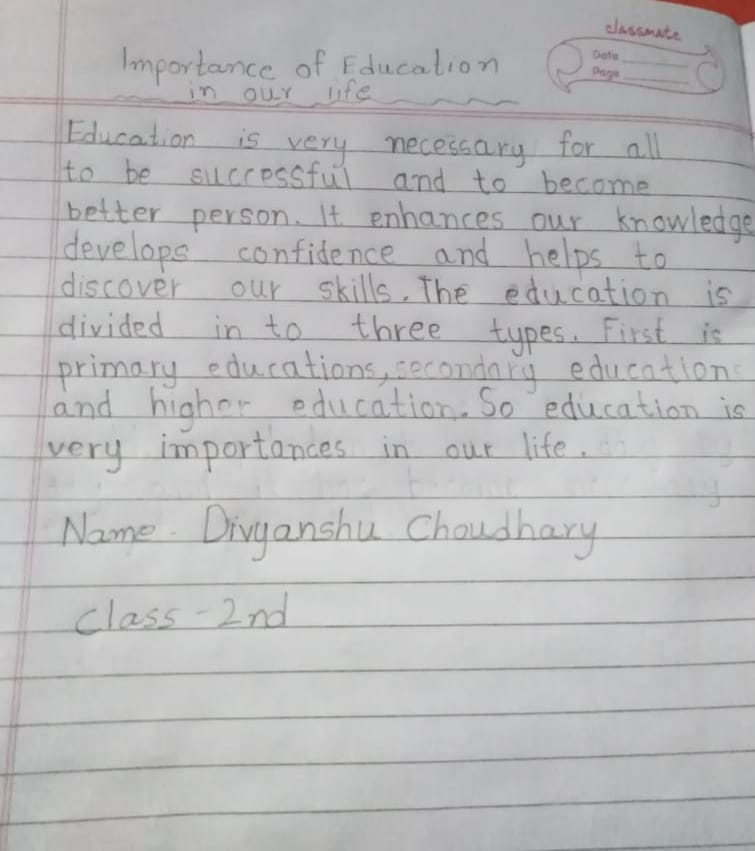 classmate
Date
Page
Importance of Education
in our life
Education is very necessary for all
to be successful and to become
better person. It enhances our knowledge
develops confidence and helps to
discover our skills. The education is
divided in to three types. First is
primary educations, secondary education
and higher education. So education is
very importances in our life.
Name. Divyanshu Choudhary
Class - 2nd